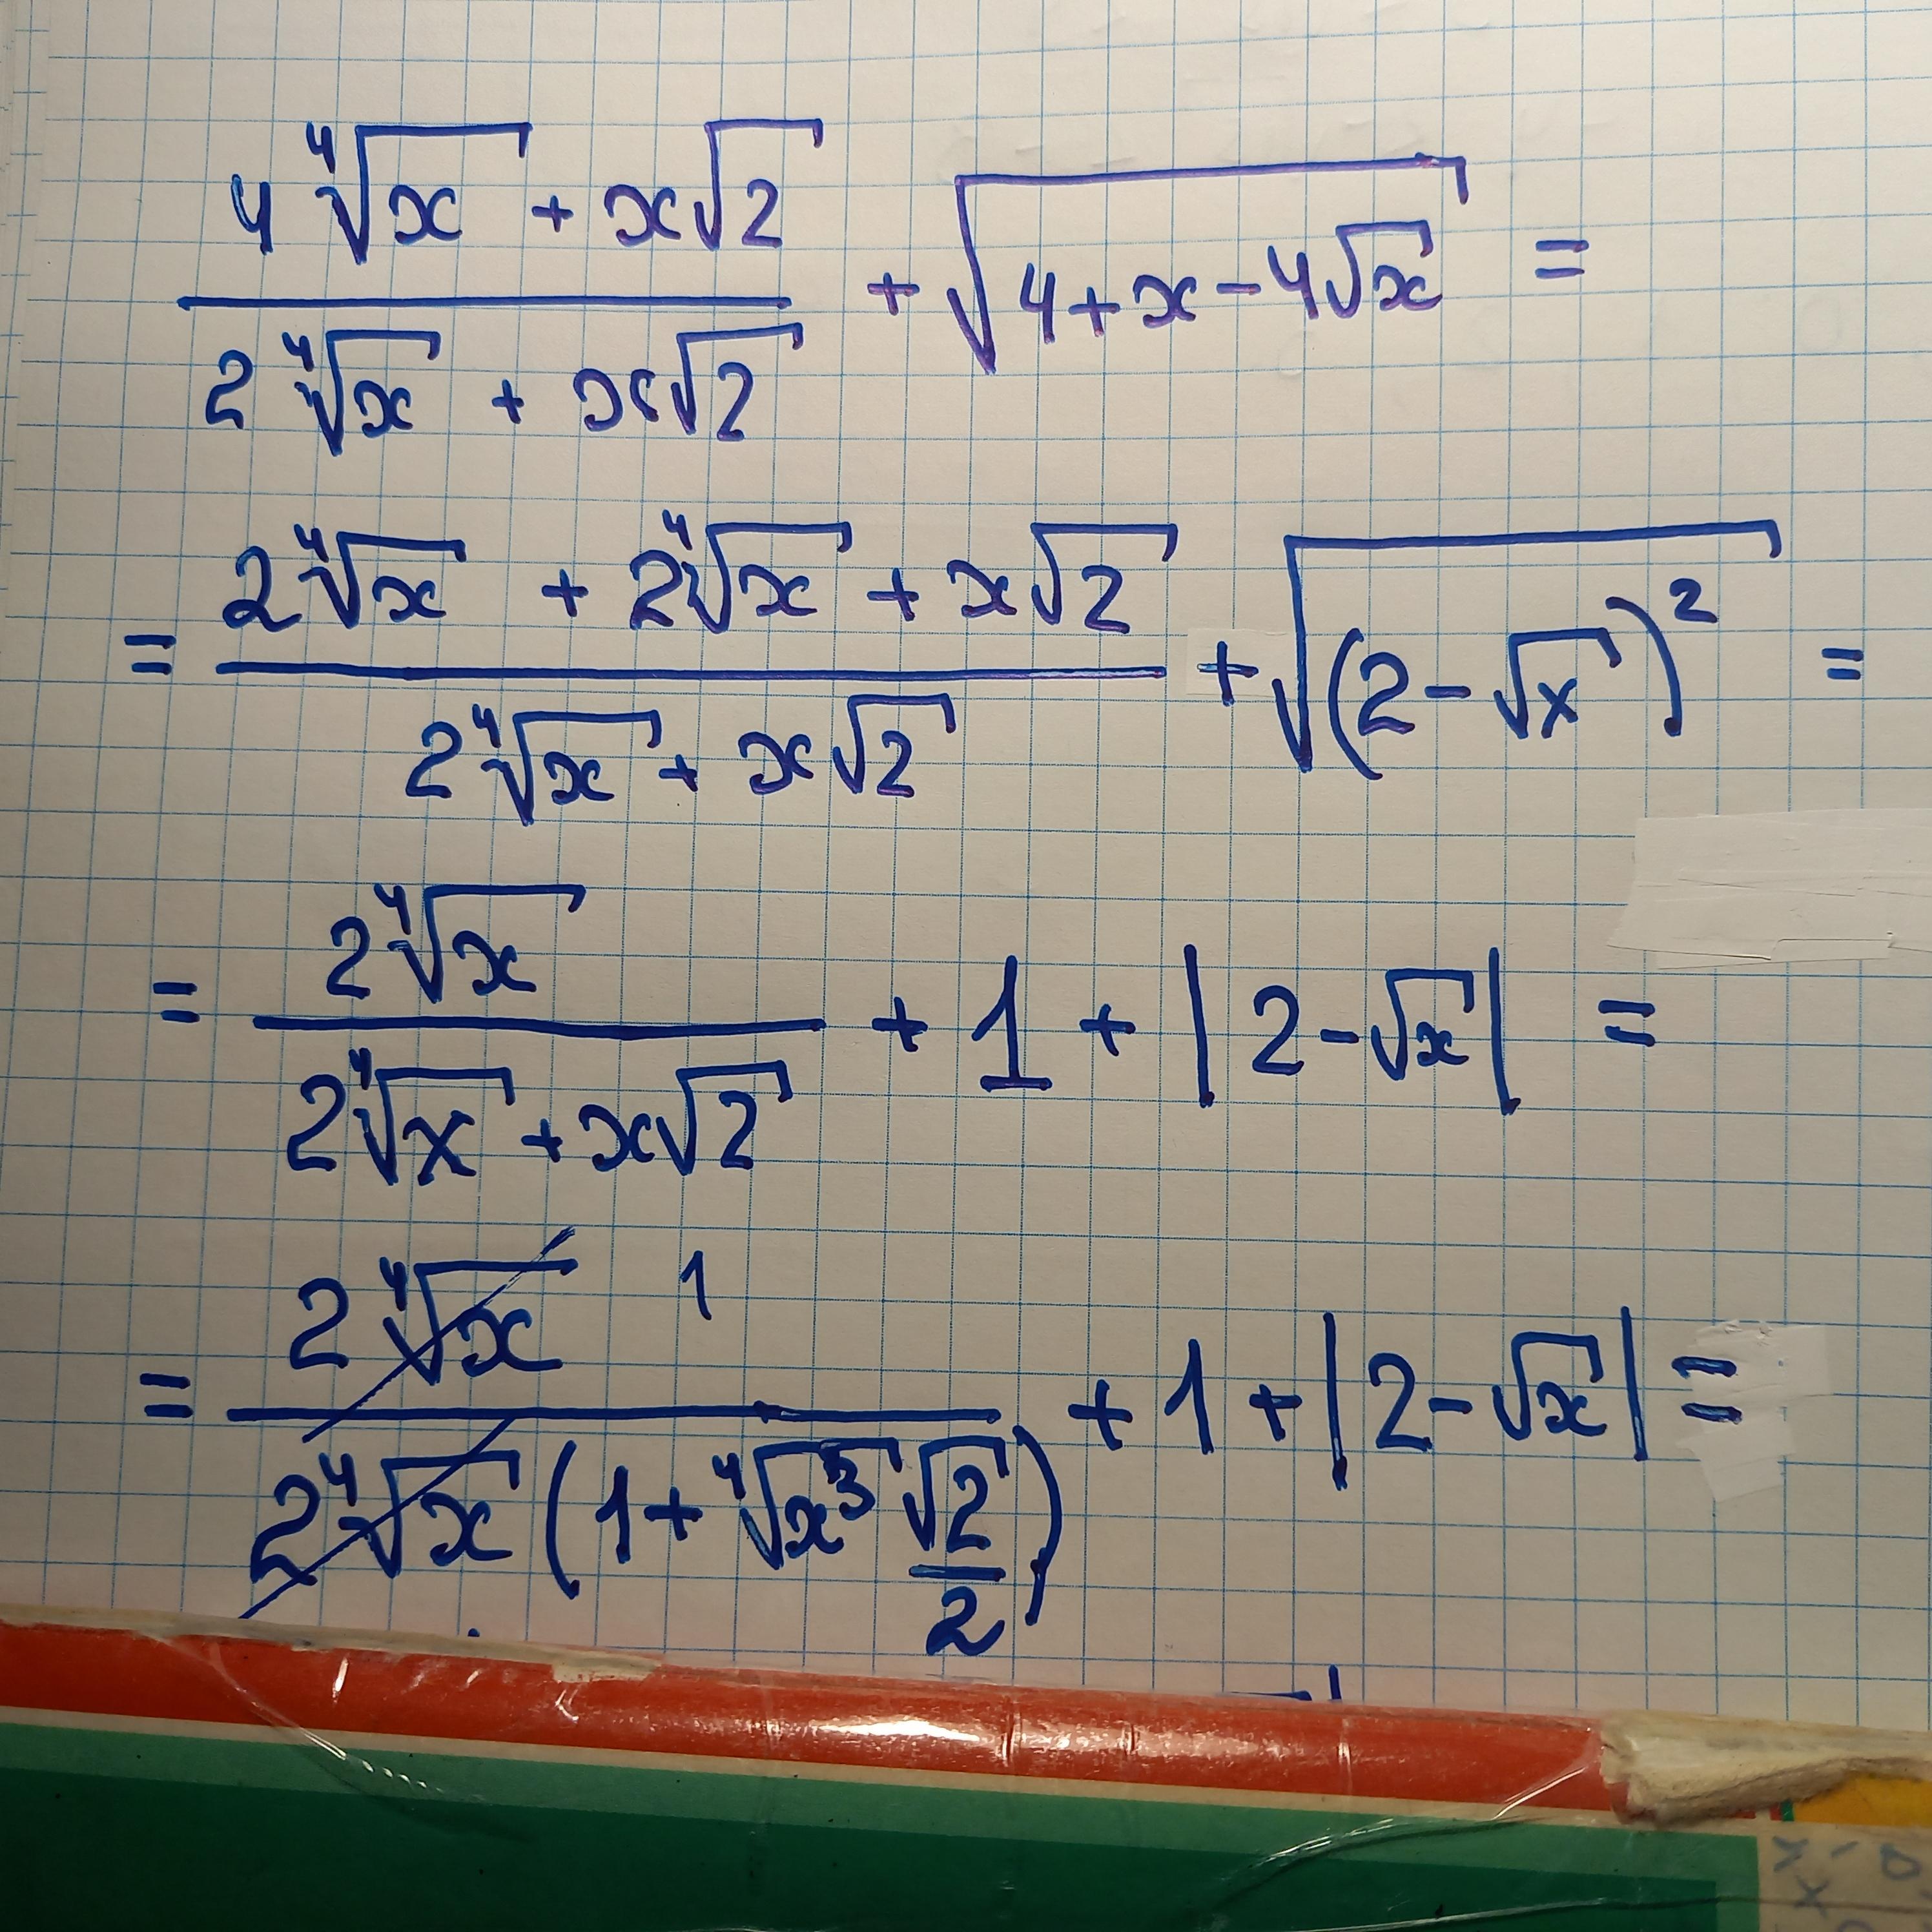 (4∜x + x√2)/(2∜x + x√2) + √(4+x-4√x) =
= (2∜x + 2∜x + x√2)/(2∜x + x√2) + √((2-√x)²) =
= (2∜x)/(2∜x + x√2) + 1 + |2-√x| =
= (2∜x 1)/(2∜x (1+∜(x³) √2/2)) + 1 + |2-√x| =